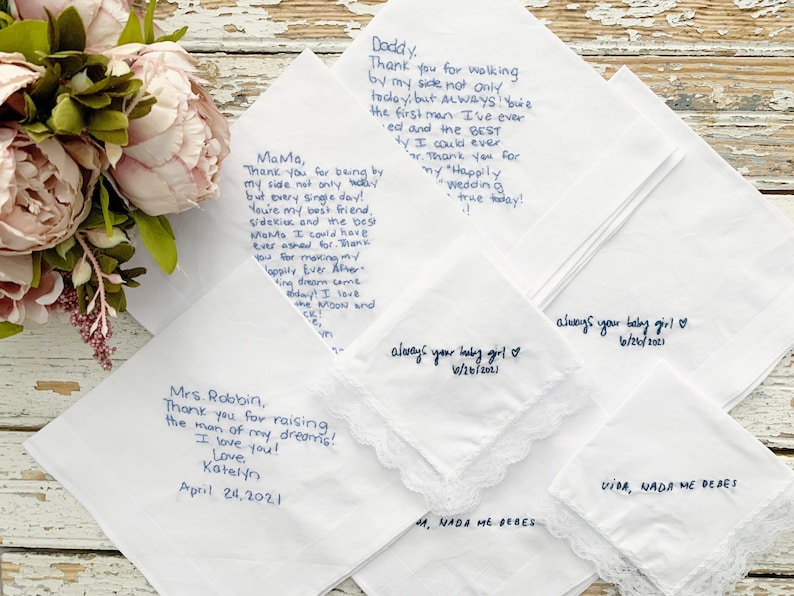 Daddy,
Thank you for walking
by my side not only
today, but ALWAYS! You're
the first man I've ever
and the BEST
I could ever
Thank you for
my "Happily
Wedding
true today!
MaMa,
Thank you for being by
my side not only today
but every single day!
You're my best friend,
sidekick and the best
MaMa I could have
ever asked for. Thank
you for making my
Happily Ever After"
dream come
today! I love
the MOON and
always your baby girl ♡
6/26/2021
always your baby girl ♡
6/26/2021
Mrs. Robbin,
Thank you for raising
the man of my dreams!
I love you!
Love,
Katelyn
April 24, 2021
VIDA, NADA ME DEBES
NADA ME DEBES